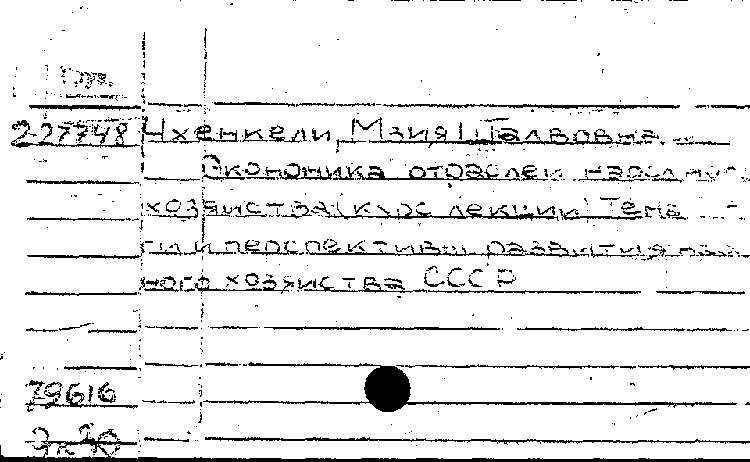 Груз.
227748 Чхенкели, Мзия Шалвовна. –
Экономика отраслей народного
хозяйства (курс лекций) Тема –
и перспективы развития
ного хозяйства СССР
79616